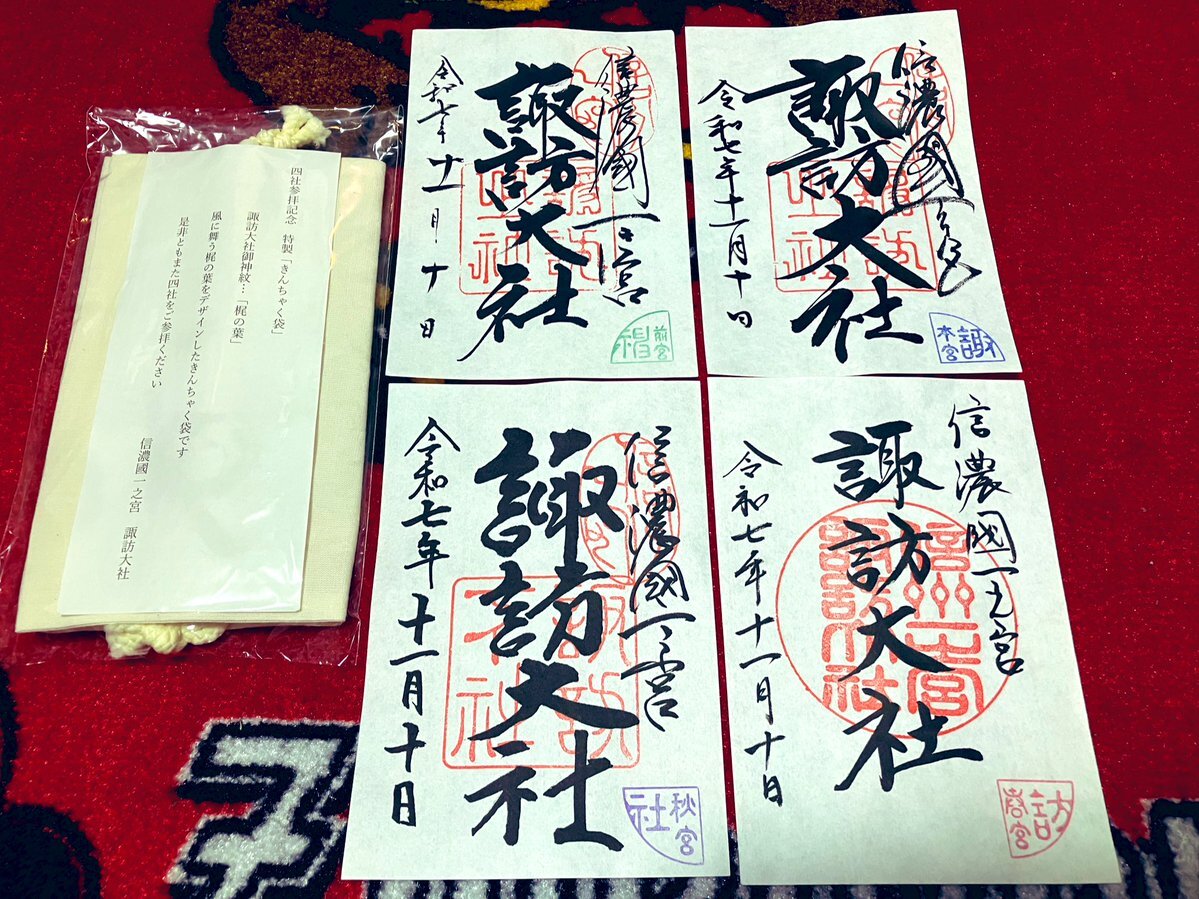 四社参拝記念　特製「きんちゃく袋」
諏訪大社御神紋…「梶の葉」
風に舞う梶の葉をデザインしたきんちゃく袋です
是非ともまた四社をご参拝ください
信濃國一之宮　諏訪大社
信濃國一之宮
諏訪大社
令和七年十一月十日
前宮
信濃國一之宮
諏訪大社
令和七年十一月十日
諏
本宮
信濃國一之宮
諏訪大社
令和七年十一月十日
秋宮
社
信濃國一之宮
諏訪大社
令和七年十一月十日
訪
春宮